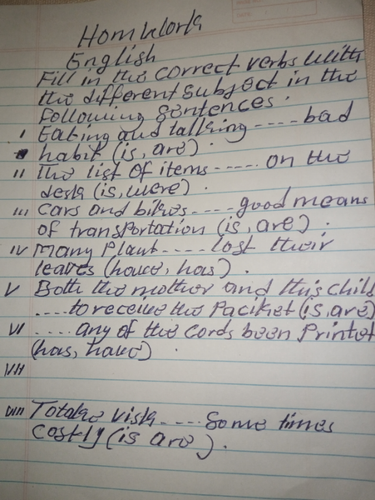 Homework
English
Fill in the correct verbs with
the different subject in the
following sentences.
i Eating and talking ----- bad
habit (is, are).
ii The list of items ----- on the
desk (is, were).
iii Cars and bikes ---- good means
of transportation (is, are).
iv Many Plant ----- lost their
leaves (have, has).
v Both the mother and this child
---- to receive the Packet (is, are)
vi ---- any of the cords been Printet
(has, have)
vii
viii To take risk ---- Some times
costly (is are).